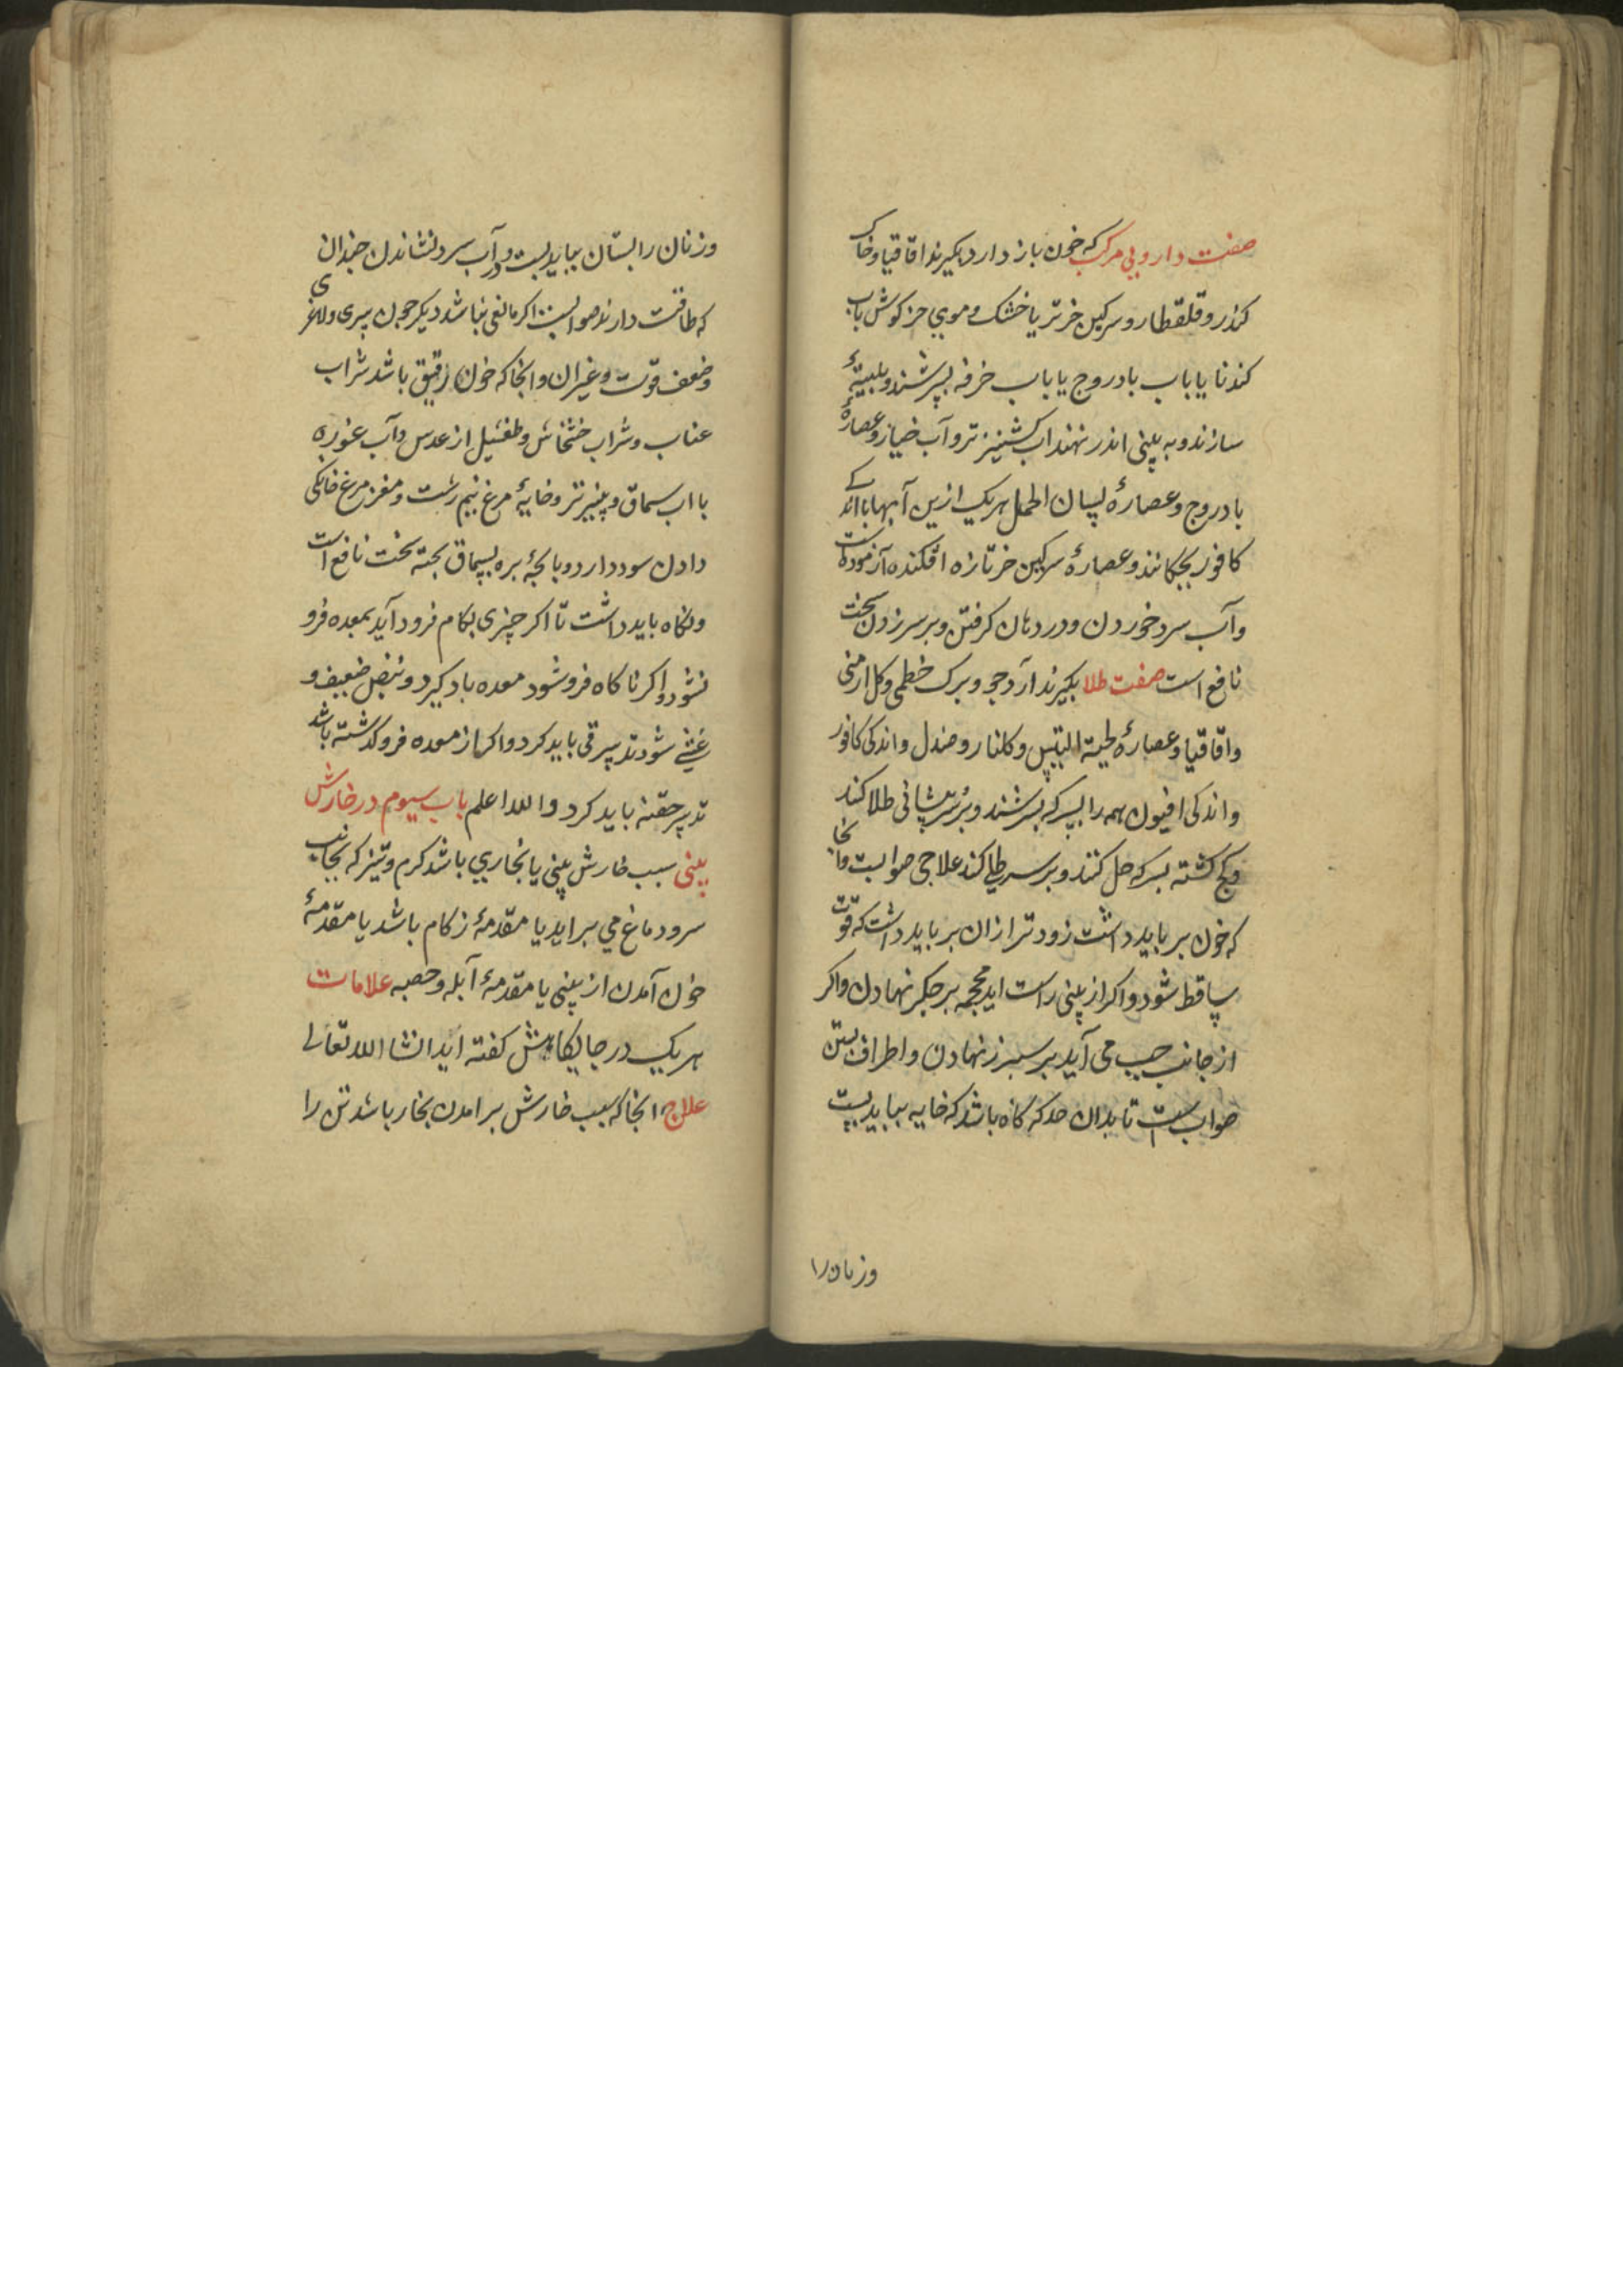 صفت داروبی مرکب که خون باز دارد بکیرند اقاقیا و خاک
کندر و قلقطار و سرکین خر تر یا خشک و موی خرکوش باب
کندنا یا باب بادروج یا باب خرفه بسرشند و بلیتهٔ
سازند و به بینی اندر نهند اب کشنیز تر و آب خیار و عصارهٔ
بادروج و عصارهٔ لسان الحمل هریک ازین آبها با اندکے
کافور بجکانند و عصارهٔ سرکین خر تازه افکنده آزموده است
وآب سرد خوردن و در دهان کرفتن و بر سر زدن سخت
نافع است صفت طلا بکیرند آرد جو و برک خطمی و کل ارمنی
واقاقیا و عصارهٔ لحیة التیس و کلنار و صندل و اندکی کافور
واندکی افیون همه را بسرکه بسرشند و بر پیشانی طلا کند
وکج کشته بسرکه حل کنند و بر سر طلی کند علاجی صوابست وانجا
که خون بر باید داشت زودتر ازان بر باید داشت که قوت
ساقط شود و اکر از بینی راست اید محجمه بر جکر نهادن واکر
از جانب جب می آید بر سبرز نهادن و اطراف بستن
صواب است تا بدان حد که کاه باشد که خایه بباید بست
وزنان را
وزنان را بستان بباید بست و در آب سرد نشاندن جندان
که طاقت دارند صوابست اکر مانعی نباشد دیکر جون بیری و لاغری
وضعف قوت و غیران وانجا که خون رقیق باشد شراب
عناب و شراب خشخاش و طفشیل از عدس و آب غوره
با اب سماق و بنیر تر و خایهٔ مرغ نیم رشت و مغز مرغ خانکی
دادن سود دارد و باجهٔ بره بسماق بخته سخت نافع است
ونکاه باید داشت تا اکر چیزی بکام فرود آید بمعده فرو
نشود و اکر ناکاه فرو شود معده باد کیرد و نبض ضعیف و
غشے شود تدبیر قی باید کرد واکر از معده فرو کذشته باشد
تدبیر حقنه باید کرد والله اعلم باب سیوم در خارش
بینی سبب خارش بینی یا بخاری باشد کرم و تیز که بجانب
سر و دماغ می براید یا مقدمهٔ زکام باشد یا مقدمهٔ
خون آمدن از بینی یا مقدمهٔ آبله و حصبه علامات
هریک در جایکاهش کفته اید انشا الله تعالی
علاج انجا که سبب خارش برامدن بخار باشد تن را